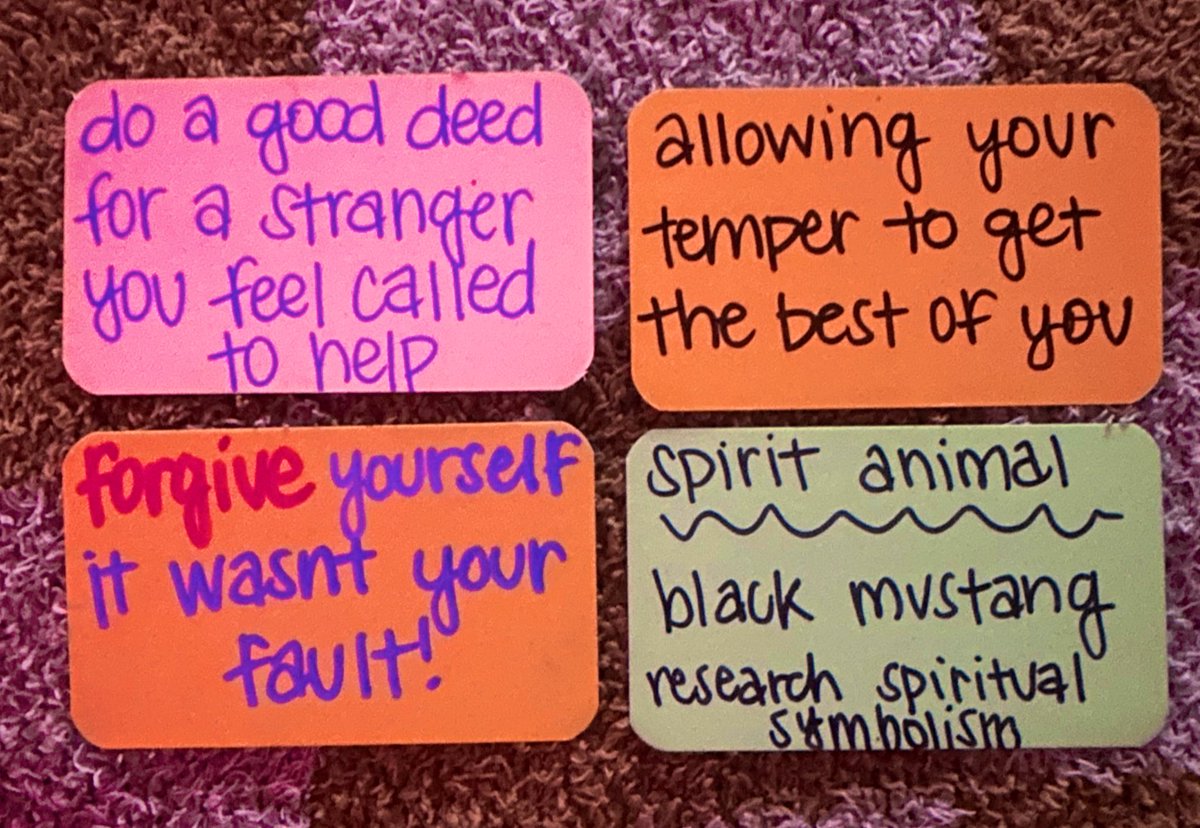 do a good deed
for a stranger
you feel called
to help
allowing your
temper to get
the best of you
forgive yourself
it wasnt your
fault!
spirit animal
black mustang
research spiritual
symbolism